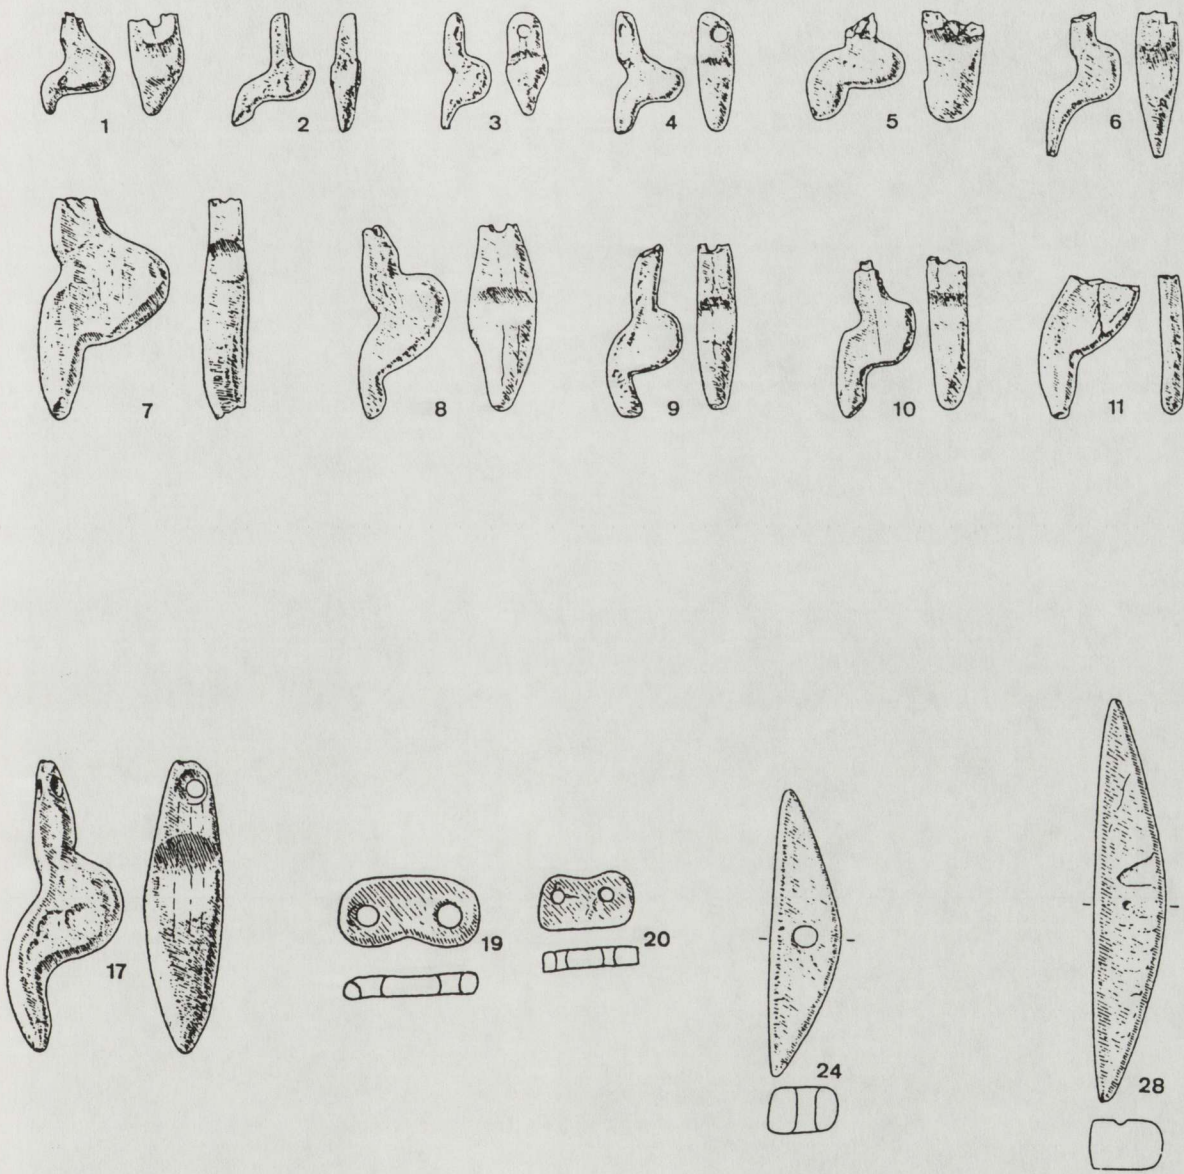 1 2 3 4 5 6
7 8 9 10 11
17 19 20 24 28